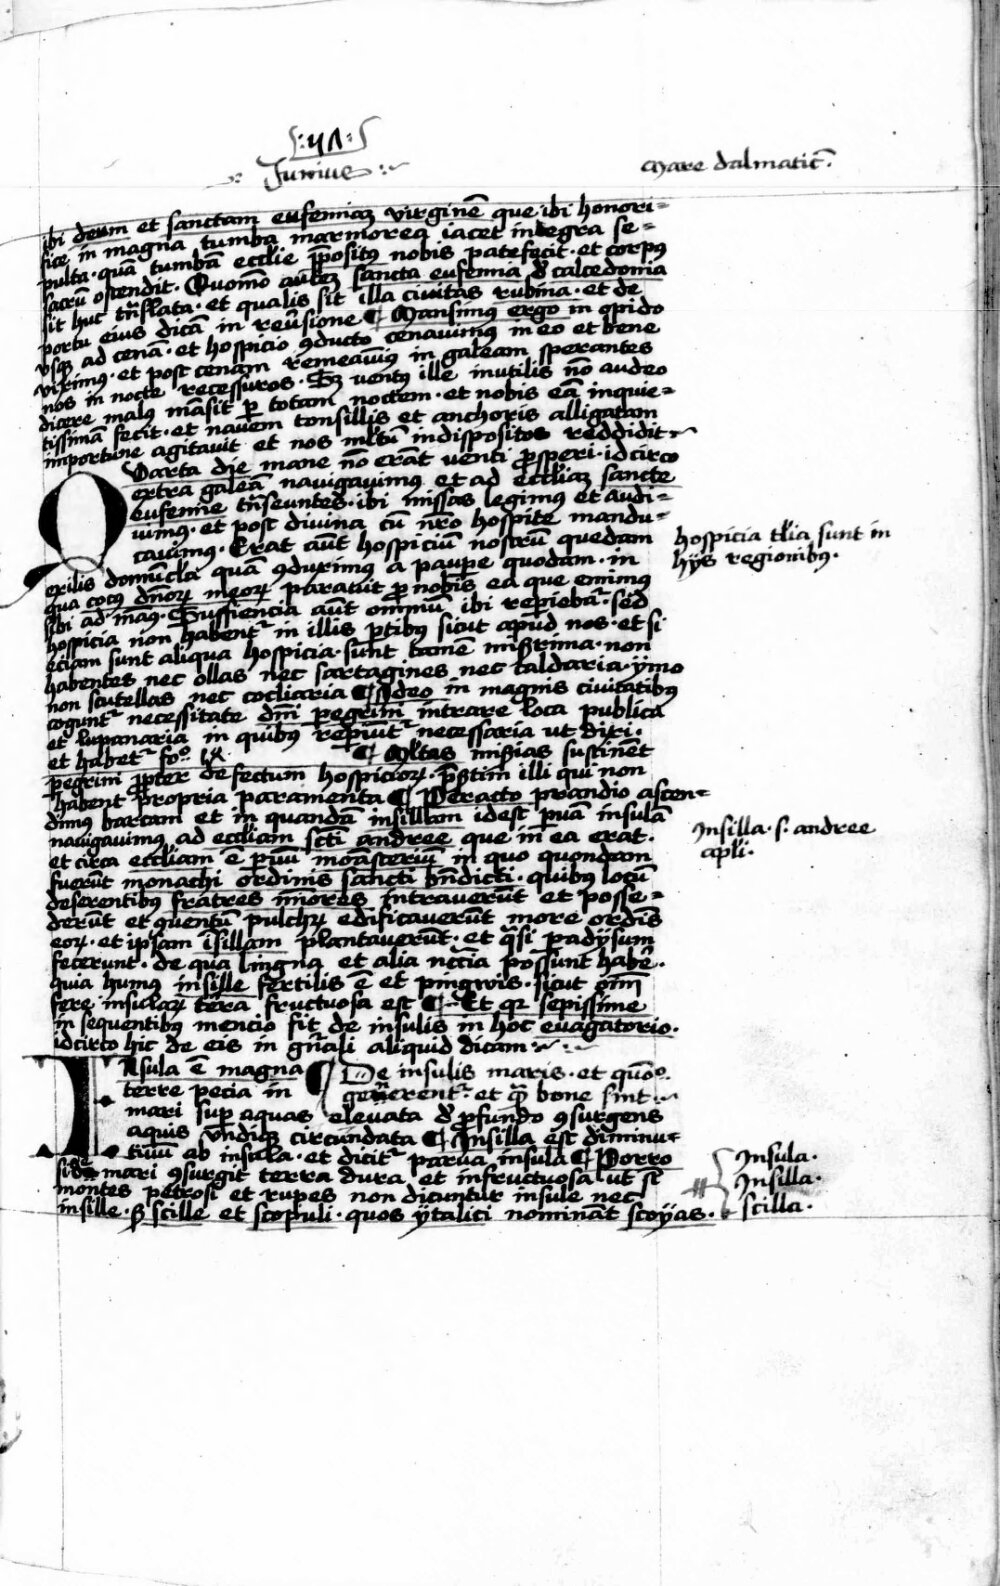 Junius
mare dalmaticū.
ibi deum et sanctam eufemiaz virginē que ibi honori-
fice in magna tumba marmorea iacet integra se-
pulta. quā tumbā ecclie ppositus nobis patefecit. et corpus
sacrū ostendit. Quomō autez sancta eufemia d' calcedonia
sit huc trāslata. et qualis sit illa civitas rubina. et de
portu eius dicā in reuersione ¶ Mansimus ergo in opido
vsqz ad cenā. et hospicio 9ducto cenauimus in eo et bene
viximus. et post cenam remeauimus in galeam sperantes
nos in nocte recessuros. Sz ventus ille inutilis nō audeo
dicere malus māsit p totam noctem. et nobis eā inquie-
tissimā fecit. et nauem tonsillis et anchoris alligatam
importune agitauit et nos mltū indispositos reddidit
Quarta die mane nō erāt venti psperi. idcirco
extra galeā nauigauimus et ad eccliaz sancte
eufemie trāseuntes. ibi missas legimus et audi-
uimus. et post diuina cū nro hospite mandu-
cauimus. Erat aūt hospiciū nostrū quedam
exilis domūcla quā 9duximus a paupe quodam. in
qua cocus dnorum meorum parauit p nobis ea que emimus
sibi ad manus. Sufficiencia aūt omniū ibi repiebat. sed
hospicia non habent in illis ptibus sicut apud nos. et si
etiam sunt aliqua hospicia. sunt tamē miserrima. non
habentes nec ollas nec sartagines nec caldaria. ymo
non scutellas nec cocliaria ¶ Ideo in magnis ciuitatibus
cogunt necessitate dni pegrini intrare loca publica
et lupanaria in quibus repiunt necessaria ut dixi.
et habet fo. ¶ Multas miserias sustinēt
pegrini ppter defectum hospiciorum. psertim illi qui non
habent propria paramenta ¶ Peracto prandio ascen-
dimus barcam et in quandā insillam idest puā insulā
nauigauimus ad eccliam scti andree que in ea erat.
et circa eccliam e puū monasteriū in quo quondam
fuerūt monachi ordinis sancti bndicti. quibus locū
deserentibus fratres minores intrauerūt et posse-
derūt et 9uentū pulchrum edificauerūt more ordis
eorum. et ipsam īsillam plantauerūt. et qsi padysum
fecerunt. de qua lingna et alia necria possunt habē.
quia humus insille fertilis ē et pingwis. sicut om
fere insularum terra fructuosa est ¶ Et qr sepissime
in sequentibus mencio fit de insulis in hoc euagatorio.
idcirco hic de eis in gnāli aliquid dicam
¶ De insulis maris. et quō
generent. et q bone sint
Insula ē magna
terre pecia in
mari sup aquas eleuata d' pfundo 9surgens
aquis vndiqz circundata ¶ Insilla est diminu-
tiuū ab insula. et dicit parua insula ¶ Porro
si de mari 9surgit terra dura. et infructuosa ut st
montes petrosi et rupes non dicuntur insule nec
insille. s scille et scopuli. quos ytalici nominant scoyas.
hospicia tlia sunt in
hys regionibus.
Insilla. s. andree
apli.
Insula.
Insilla.
scilla.